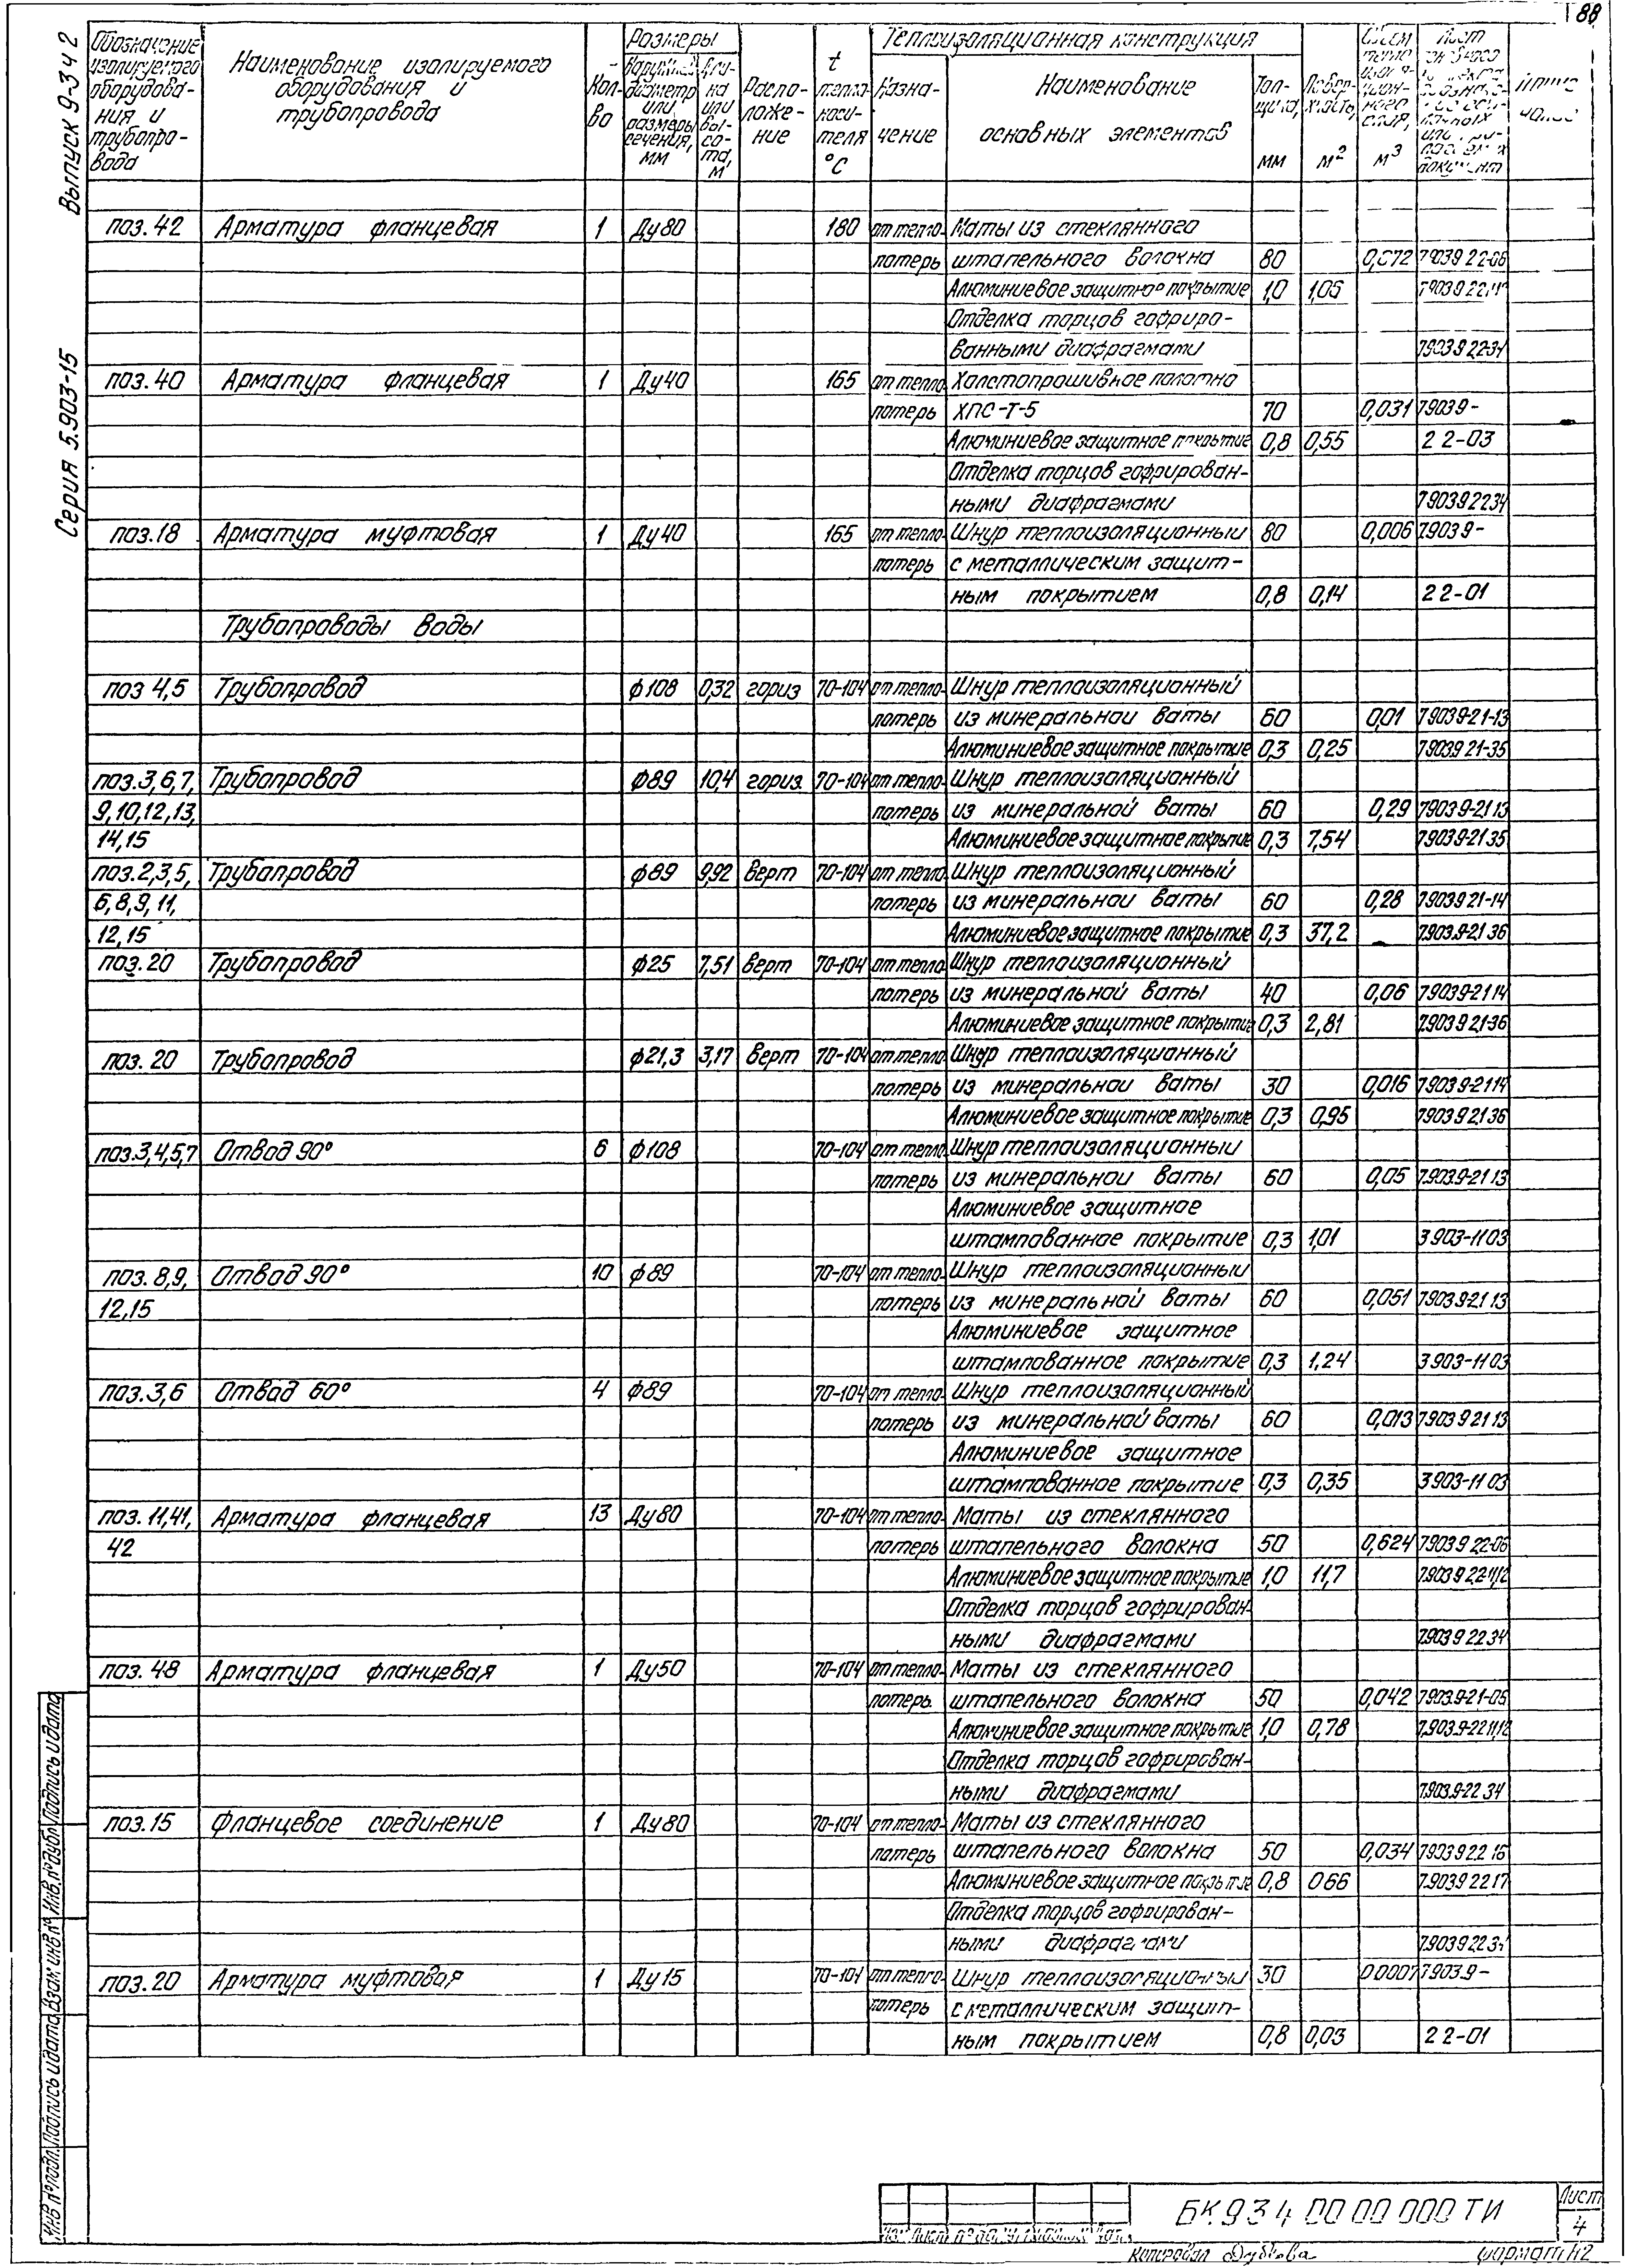 88
Выпуск 9-34 2
Серия 5.903-15
Обозначение изолируемого оборудования и трубопровода
Наименование изолируемого оборудования и трубопровода
Кол-во
Размеры
Наружный диаметр или размеры сечения, мм
Длина или высота, м
Расположение
t теплоносителя °С
Теплоизоляционная конструкция
Назначение
Наименование основных элементов
Толщина, мм
Поверхность, м2
м3
поз.42 Арматура фланцевая 1 Ду80 180 от тепло- Маты из стеклянного
потерь штапельного волокна 80 0,072 7.903.9 22-06
Алюминиевое защитное покрытие 1,0 1,05
Отделка торцов гофриро-
ванными диафрагмами 7.903.9 22-34
поз.40 Арматура фланцевая 1 Ду40 165 от тепло- Холстопрошивное полотно
потерь ХПС-Т-5 70 0,031 7.903.9-
Алюминиевое защитное покрытие 0,8 0,55 22-03
Отделка торцов гофрирован-
ными диафрагмами 7.903.9 22 34
поз.18 Арматура муфтовая 1 Ду40 165 от тепло- Шнур теплоизоляционный 80 0,006 7.903.9-
потерь с металлическим защит-
ным покрытием 0,8 0,14 22-01
Трубопроводы воды
поз 4,5 Трубопровод ф108 0,32 гориз 70-104 от тепло- Шнур теплоизоляционный
потерь из минеральной ваты 60 0,01 7.903.9-21-13
Алюминиевое защитное покрытие 0,3 0,25 7.903.9 21-35
поз.3,6,7, Трубопровод ф89 10,4 гориз. 70-104 от тепло- Шнур теплоизоляционный
9,10,12,13, потерь из минеральной ваты 60 0,29 7.903.9-21 13
14,15 Алюминиевое защитное покрытие 0,3 7,54 7.903.9-21.35
поз.2,3,5, Трубопровод ф89 9,92 верт 70-104 от тепло- Шнур теплоизоляционный
6,8,9,11, потерь из минеральной ваты 60 0,28 7.903.9 21-14
12,15 Алюминиевое защитное покрытие 0,3 37,2 7.903.9-21 36
поз.20 Трубопровод ф25 7,51 верт 70-104 от тепло- Шнур теплоизоляционный
потерь из минеральной ваты 40 0,06 7.903.9-21 14
Алюминиевое защитное покрытие 0,3 2,81 7.903.9 21-36
поз. 20 Трубопровод ф21,3 3,17 верт 70-104 от тепло- Шнур теплоизоляционный
потерь из минеральной ваты 30 0,016 7.903.9-21 14
Алюминиевое защитное покрытие 0,3 0,95 7.903.9 21.36
поз.3,4,5,7 Отвод 90° 6 ф108 70-104 от тепло- Шнур теплоизоляционный
потерь из минеральной ваты 60 0,05 7.903.9-21 13
Алюминиевое защитное
штампованное покрытие 0,3 1,01 3.903-11 03
поз. 8,9, Отвод 90° 10 ф89 70-104 от тепло- Шнур теплоизоляционный
12,15 потерь из минеральной ваты 60 0,051 7.903.9-21 13
Алюминиевое защитное
штампованное покрытие 0,3 1,24 3.903-11 03
поз.3,6 Отвод 60° 4 ф89 70-104 от тепло- Шнур теплоизоляционный
потерь из минеральной ваты 60 0,013 7.903 9 21 13
Алюминиевое защитное
штампованное покрытие 0,3 0,35 3.903-11 03
поз. 11,41, Арматура фланцевая 13 Ду80 70-104 от тепло- Маты из стеклянного
42 потерь штапельного волокна 50 0,624 7.903 9 22-06
Алюминиевое защитное покрытие 1,0 11,7 7.903.9 22 11,12
Отделка торцов гофрирован-
ными диафрагмами 7.903 9 22 34
поз. 48 Арматура фланцевая 1 Ду50 70-104 от тепло- Маты из стеклянного
потерь. штапельного волокна 50 0,042 7.903.9-21-05
Алюминиевое защитное покрытие 1,0 0,78 7.903.9-22 11,12
Отделка торцов гофрирован-
ными диафрагмами 7.903.9-22 34
поз.15 Фланцевое соединение 1 Ду80 70-104 от тепло- Маты из стеклянного
потерь штапельного волокна 50 0,034 7.903 9 22 16
Алюминиевое защитное покрытие 0,8 0 66 7.903.9 22 17
Отделка торцов гофрирован-
ными диафрагмами
поз.20 Арматура муфтовая 1 Ду15 70-104 от тепло- Шнур теплоизоляционный 30 0 0007 7.903.9-
потерь с металлическим защит-
ным покрытием 0,8 0,03 22-01
Инв №подл. Подпись и дата Взам инв № Инв.№дубл Подпись и дата
БК 934 00 00 000 ТИ
Лист
4
копировал Дубкова